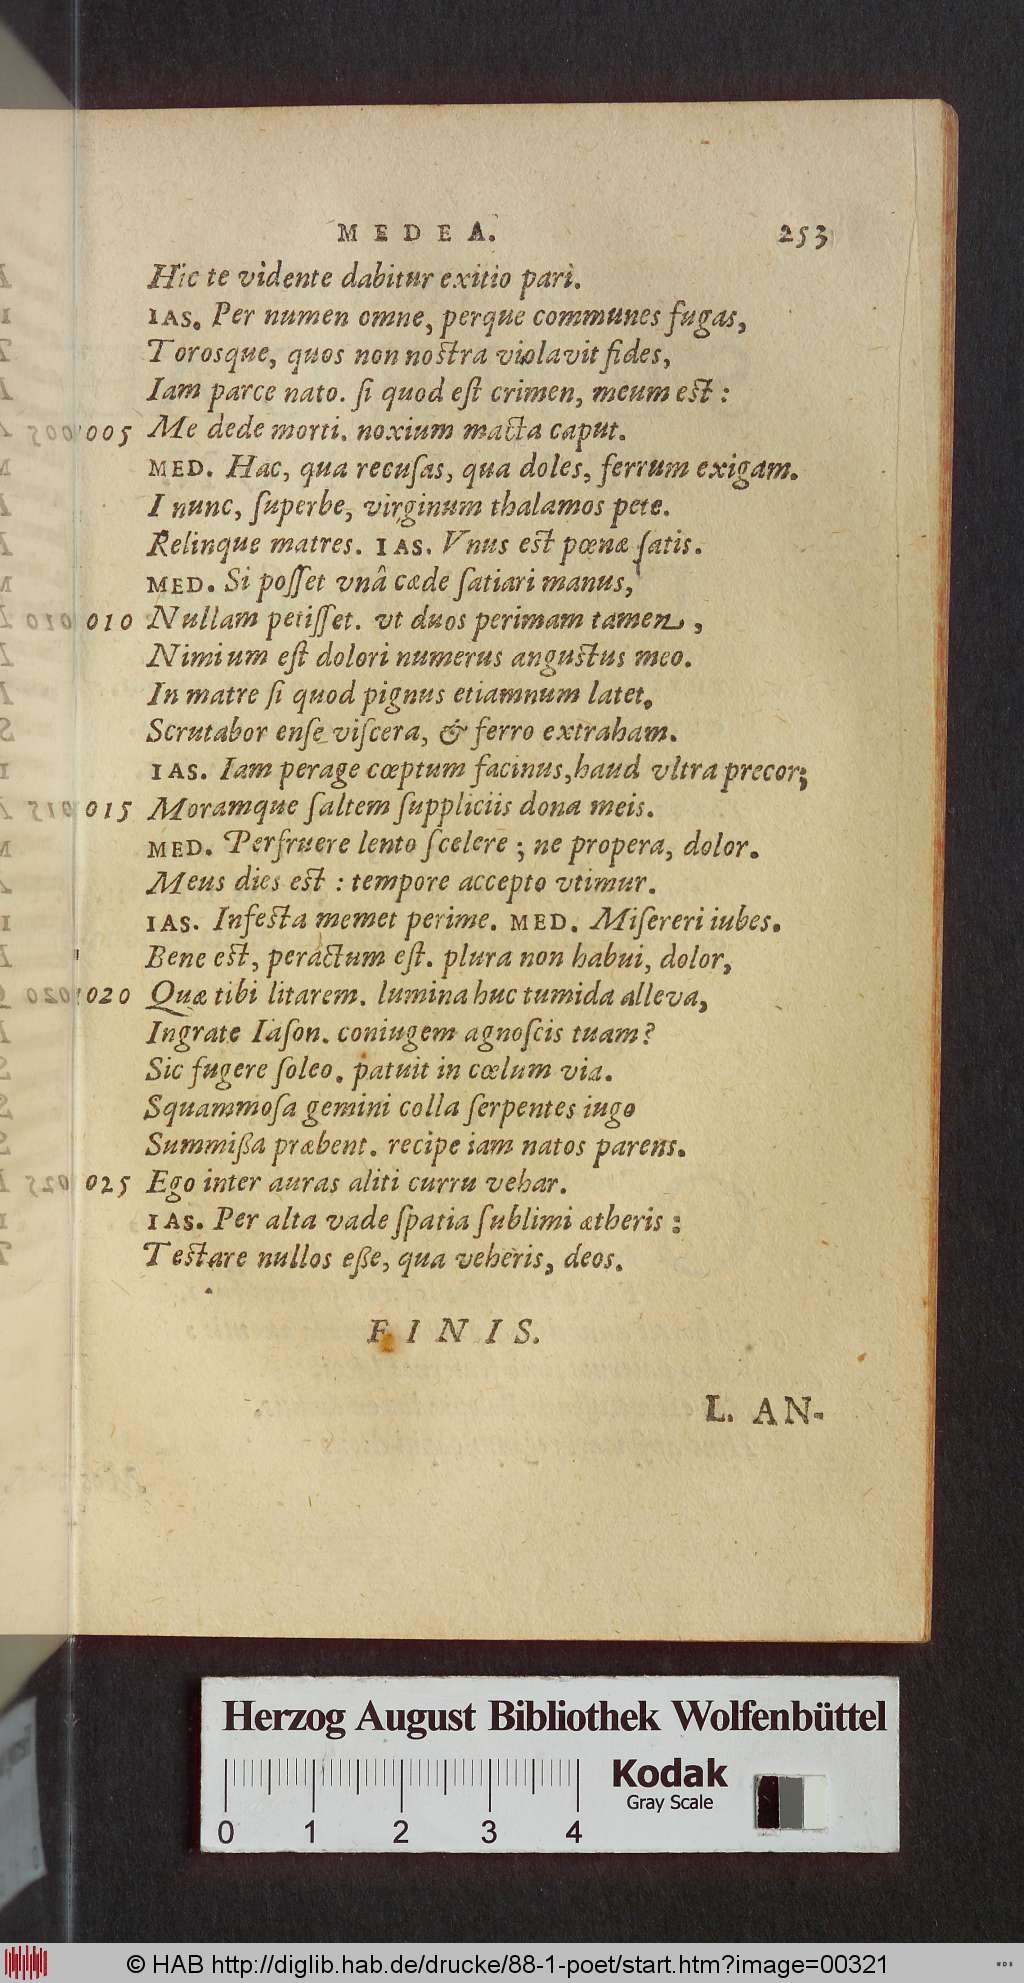 MEDEA. 253
Hic te vidente dabitur exitio pari.
IAS. Per numen omne, perque communes fugas,
Torosque, quos non nostra violavit fides,
Iam parce nato. ſi quod eſt crimen, meum est:
005 Me dede morti. noxium macta caput.
MED. Hac, qua recuſas, qua doles, ferrum exigam.
I nunc, ſuperbe, virginum thalamos pete.
Relinque matres. IAS. Vnus est pœnæ ſatis.
MED. Si poſſet vnâ cæde ſatiari manus,
010 Nullam petiſſet. vt duos perimam tamen,
Nimium eſt dolori numerus angustus meo.
In matre ſi quod pignus etiamnum latet.
Scrutabor enſe viſcera, & ferro extraham.
IAS. Iam perage cœptum facinus, haud vltra precor;
015 Moramque ſaltem ſuppliciis dona meis.
MED. Perfruere lento ſcelere; ne propera, dolor.
Meus dies est: tempore accepto vtimur.
IAS. Infesta memet perime. MED. Miſereri iubes.
Bene est, peractum eſt. plura non habui, dolor,
020 Quæ tibi litarem. lumina huc tumida alleva,
Ingrate Iaſon. coniugem agnoſcis tuam?
Sic fugere ſoleo. patuit in cœlum via.
Squammoſa gemini colla ſerpentes iugo
Summißa præbent. recipe iam natos parens.
025 Ego inter auras aliti curru vehar.
IAS. Per alta vade ſpatia ſublimi ætheris:
Testare nullos eße, qua veheris, deos.
FINIS.
L. AN-
Herzog August Bibliothek Wolfenbüttel
Kodak
Gray Scale
0 1 2 3 4
© HAB http://diglib.hab.de/drucke/88-1-poet/start.htm?image=00321